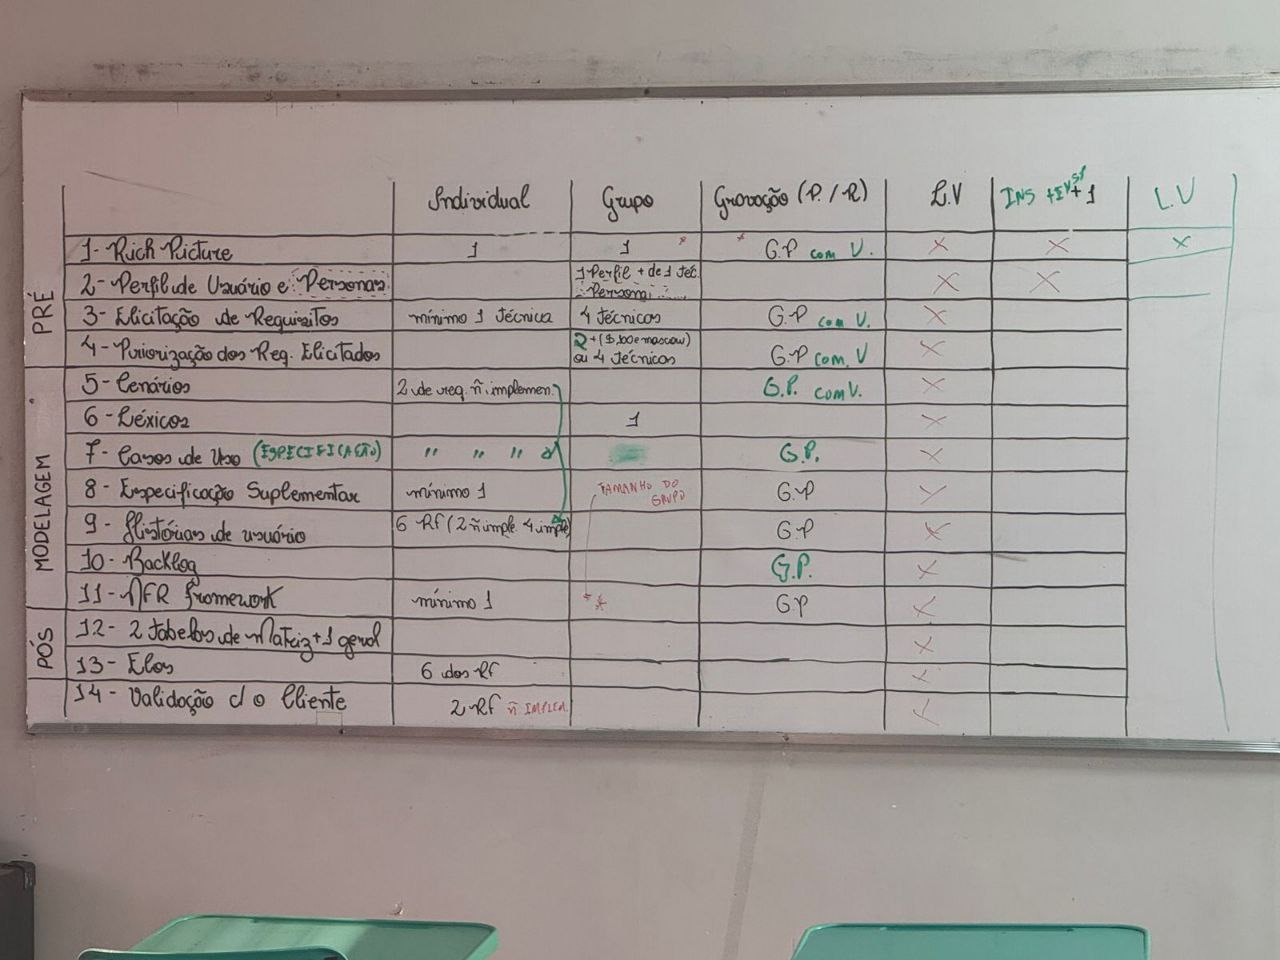 Individual Grupo Gravação (P. / R) L.V INS + 1 L.V
PRÉ
1- Rich Picture 1 1 * * G.P com V. X X X
2- Perfil de Usuário e Personas 1 Perfil + de 1 téc. X X
Persona
3- Elicitação de Requisitos mínimo 1 técnica 4 técnicas G.P com V. X
4- Priorização dos Req. Elicitados 2 G.P com V X
ou 4 técnicas
MODELAGEM
5- Cenários 2 de req. ñ. implemen. G.P. com V. X
6- Léxicos 1 X
7- Casos de Uso (ESPECIFICAÇÃO) " " " G.P. X
8- Especificação Suplementar mínimo 1 TAMANHO DO G.P X
GRUPO
9- Histórias de usuário 6 RF (2 ñ imple. 4 imple) G.P X
10- Backlog G.P. X
11- NFR framework mínimo 1 ** G.P X
PÓS
12- 2 tabelas de Matriz + 1 geral X
13- Elos 6 dos RF X
14- Validação c/ o Cliente 2 RF ñ IMPLEM. X